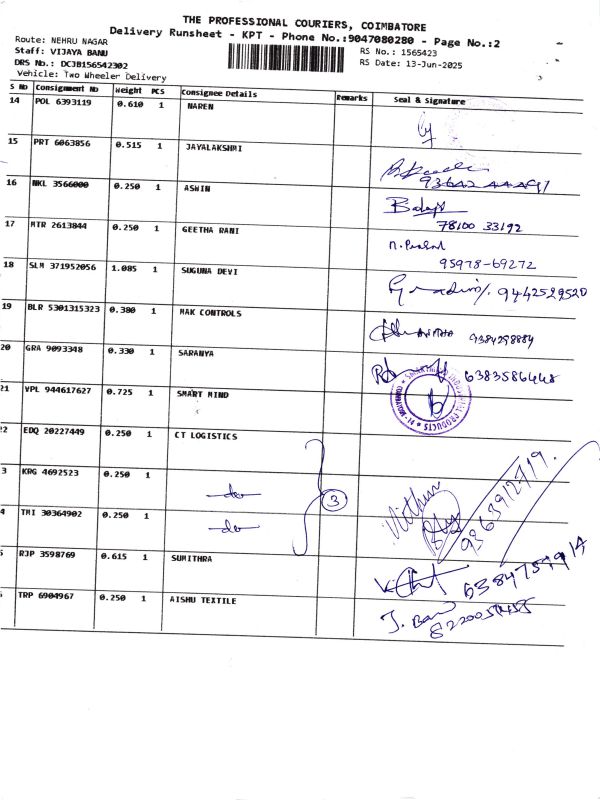 THE PROFESSIONAL COURIERS, COIMBATORE
Delivery Runsheet - KPT - Phone No.:9047080280 - Page No.:2
Route: NEHRU NAGAR
Staff: VIJAYA BANU
DRS No.: DCJB156542302
Vehicle: Two Wheeler Delivery
RS No.: 1565423
RS Date: 13-Jun-2025
S No Consignment No Weight PCS Consignee Details Remarks Seal & Signature
14 POL 6393119 0.610 1 NAREN
15 PRT 6063856 0.515 1 JAYALAKSHMI
16 NKL 3566000 0.250 1 ASWIN
78100 33192
17 MTR 2613844 0.250 1 GEETHA RANI
95978-69272
18 SLM 371952056 1.085 1 SUGUNA DEVI 9442529520
19 BLR 5301315323 0.380 1 MAK CONTROLS 9384298884
20 GRA 9093348 0.330 1 SARANYA 6383586448
21 VPL 944617627 0.725 1 SMART MIND
2 EDQ 20227449 0.250 1 CT LOGISTICS
3 KRG 4692523 0.250 1 do
3
4 TMI 30364902 0.250 1 do
9363912719
5 RJP 3598769 0.615 1 SUMITHRA
6 TRP 6904967 0.250 1 AISHU TEXTILE